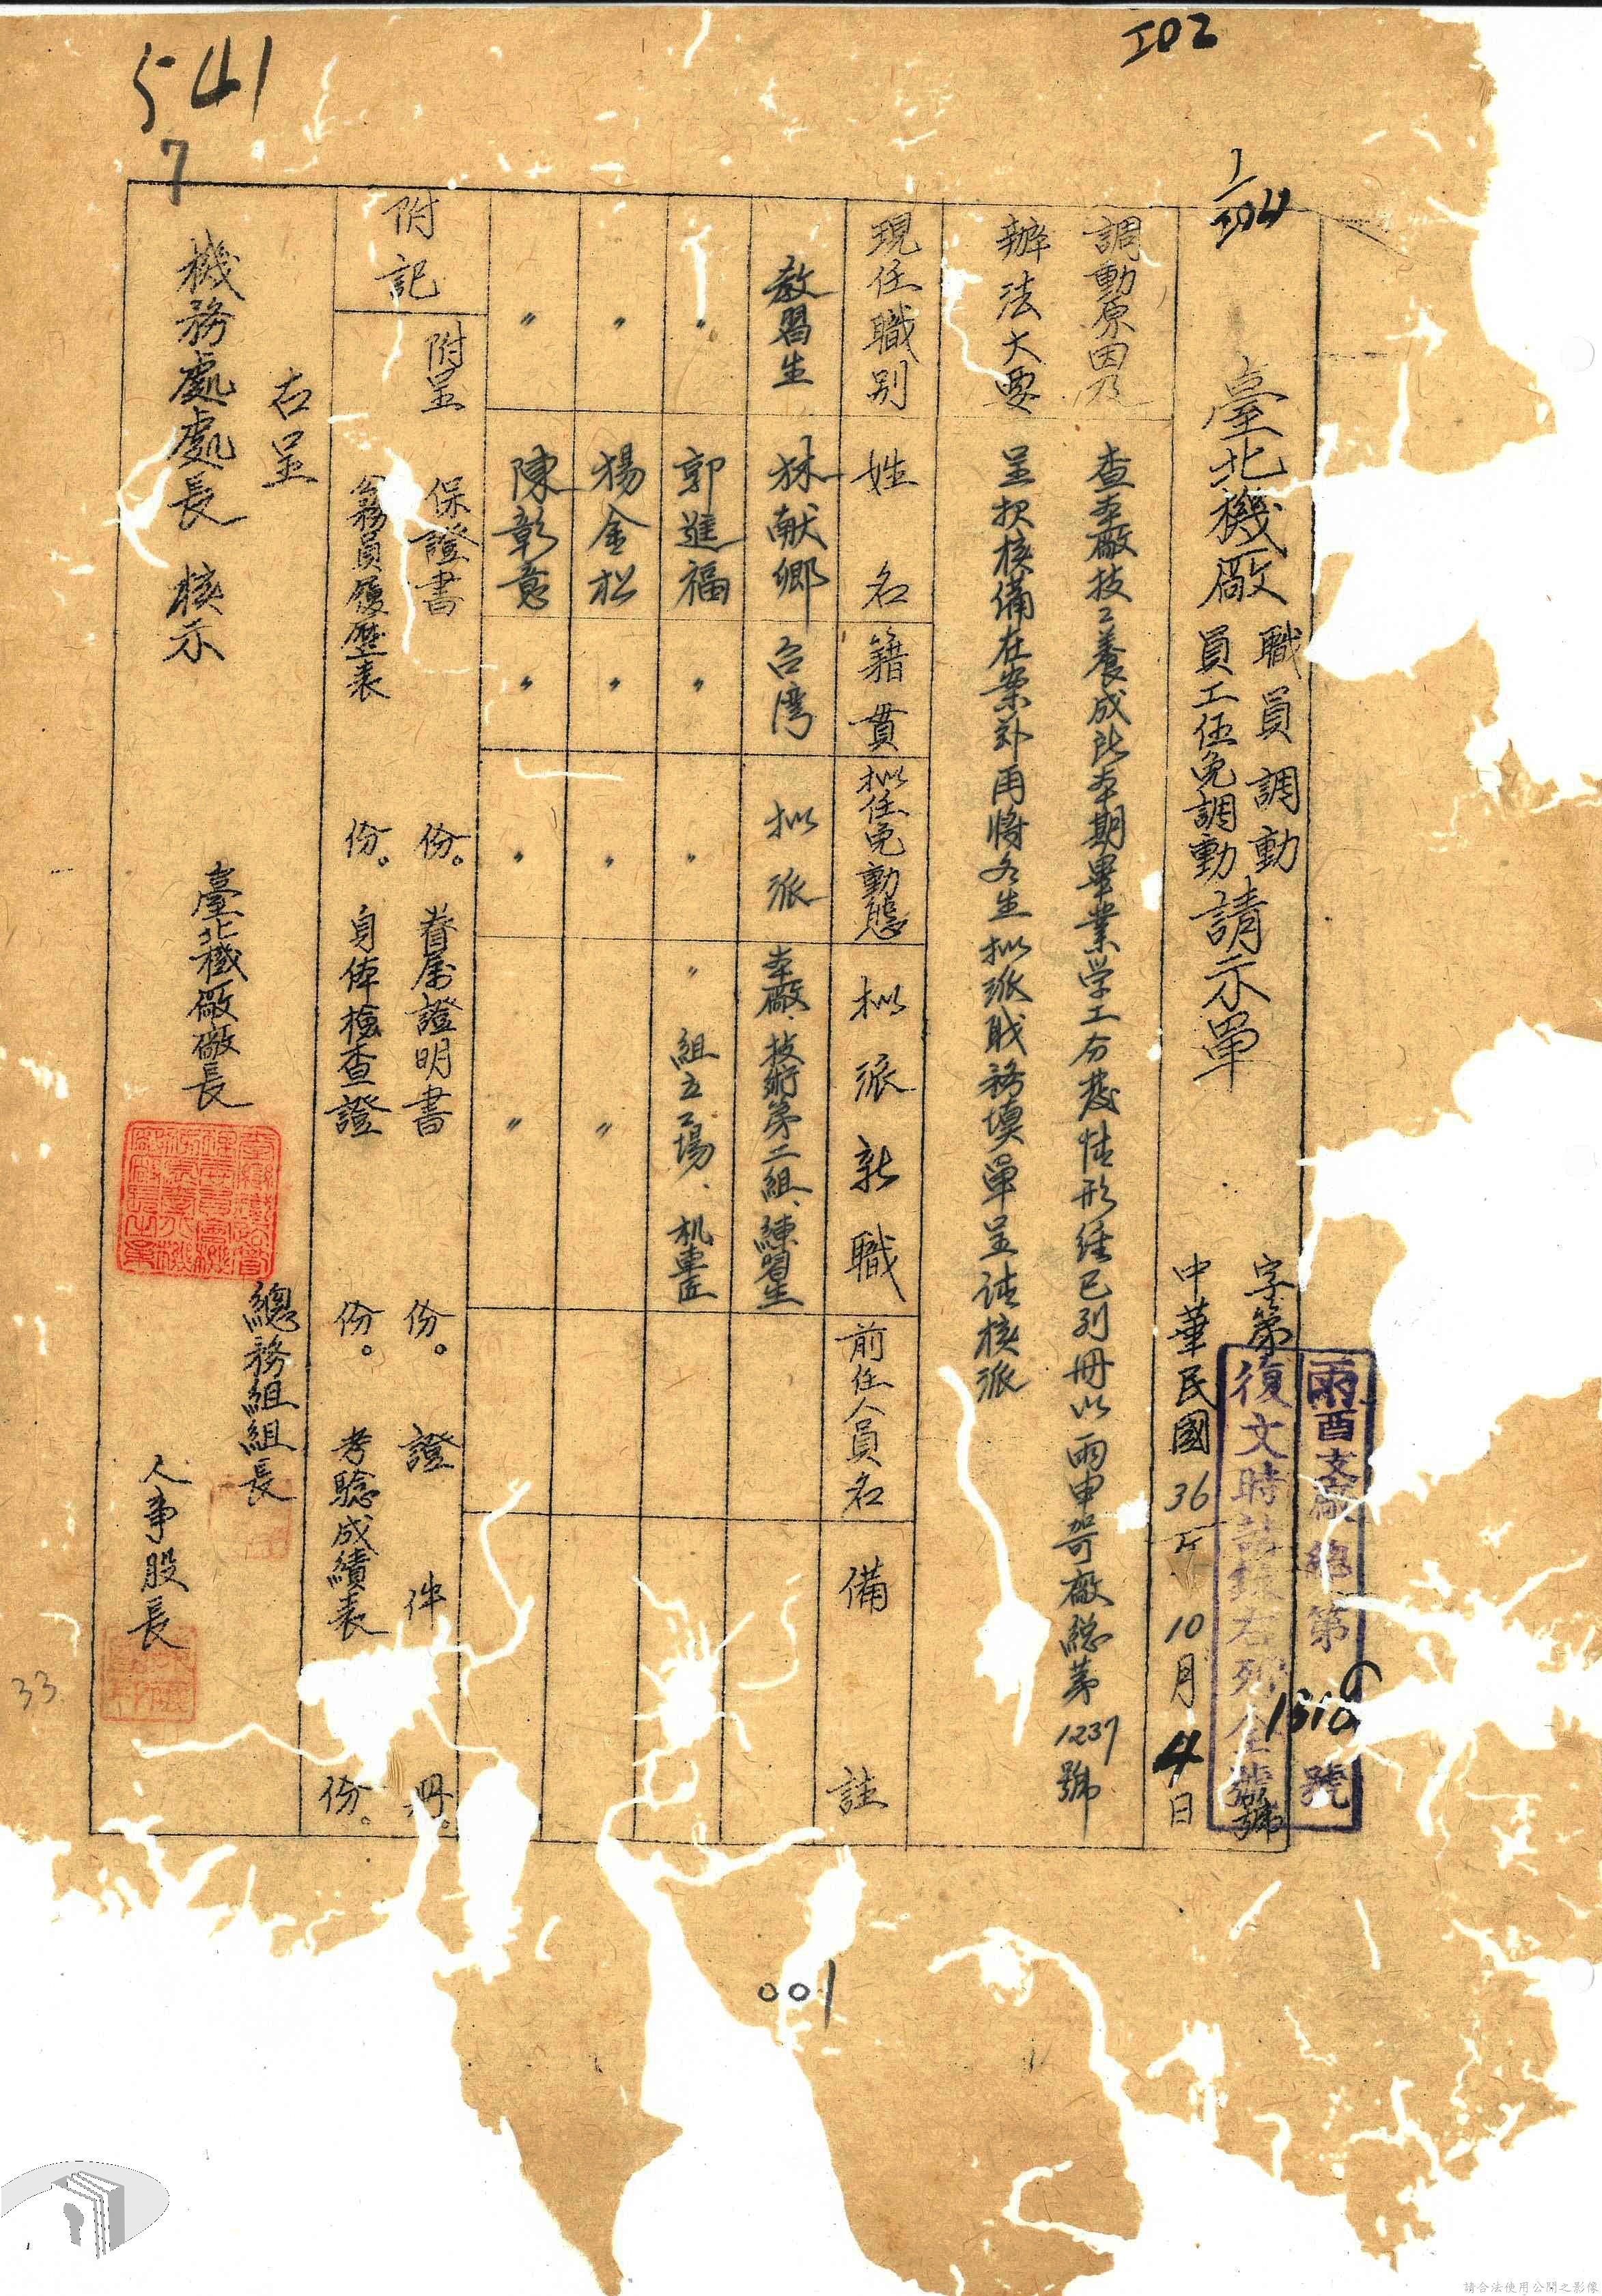 102
541
7
臺北機廠
職員調動
員工任免調動
請示單
字第
號
雨酉支廠總第
號
復文時請錄右列全號
中華民國36年10月4日
調動原因及
辦法大要
查本廠技工養成所本期畢業学工分發情形經已列冊以雨申哿廠總第1237號
呈报核備在案茲再將各生拟派職務填單呈請核派
現任職別
姓名
籍貫
拟任免動態
拟派新職
前任人員名
備註
教習生
林献鄉
台湾
拟派
本廠、技術第二組、練習生
〃
郭進福
〃
〃
〃 組立工場、机車匠
〃
楊金松
〃
〃
〃
〃
陳彰意
〃
〃
〃
附記
附呈
保證書 份。眷属證明書 份。證件 冊。
務員履歷表 份。身体檢查證 份。考驗成績表 份。
右呈
機務處處長 核示
臺北機廠廠長
總務組組長
人事股長
33
001
請合法使用公開之影像